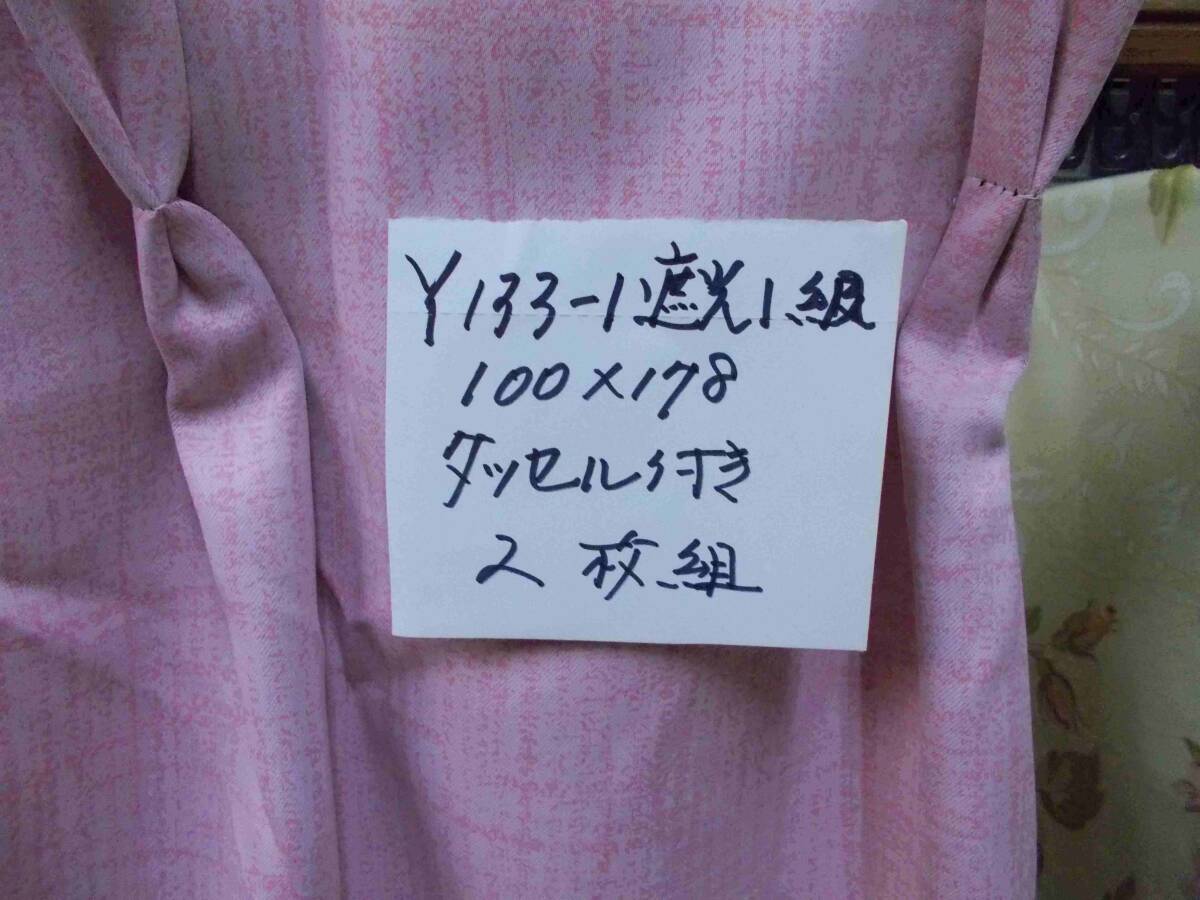 Y133-1遮光1組
100×178
タッセル付き
2枚組